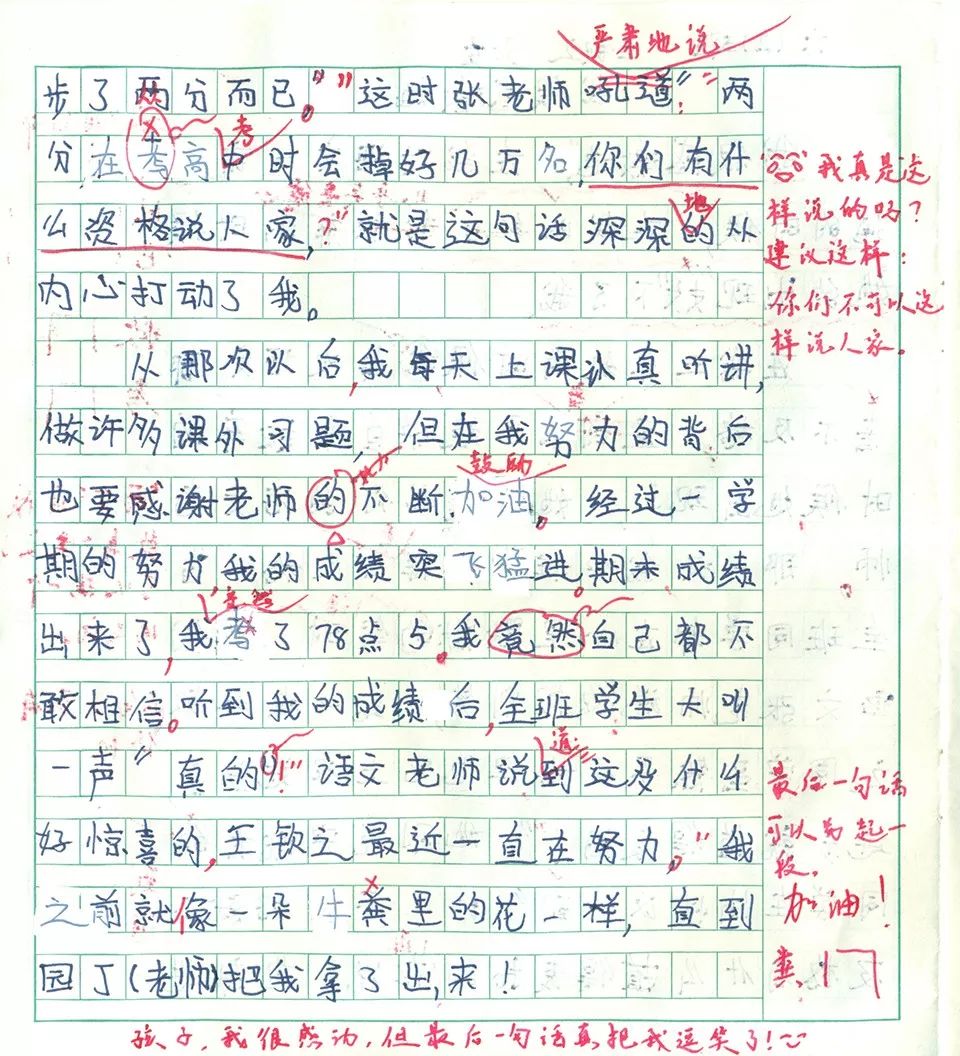 严肃地说
步了两分而已。”这时张老师吼道：“两
考
分,在考高中时会掉好几万名,你们有什
么资格说人家,?”就是这句话深深的从
地
内心打动了我。
从那次以后,我每天上课认真听讲,
做许多课外习题,但在我努力的背后
鼓励
也要感谢老师的不断加油。经过一学
期的努力我的成绩突飞猛进。期末成绩
竟然
出来了,我考了78点5。我竟然自己都不
敢相信。听到我的成绩后,全班学生大叫
一声“真的!”语文老师说到这没什么
道
好惊喜的,王钦之最近一直在努力。”我
之前就像一朵牛粪里的花一样,直到
园丁(老师)把我拿了出来!
我真是这
样说的吗?
建议这样:
你们不可以这
样说人家。
最后一句话
可以另起一
段。
加油!
粪
孩子,我很感动,但最后一句话真把我逗笑了!